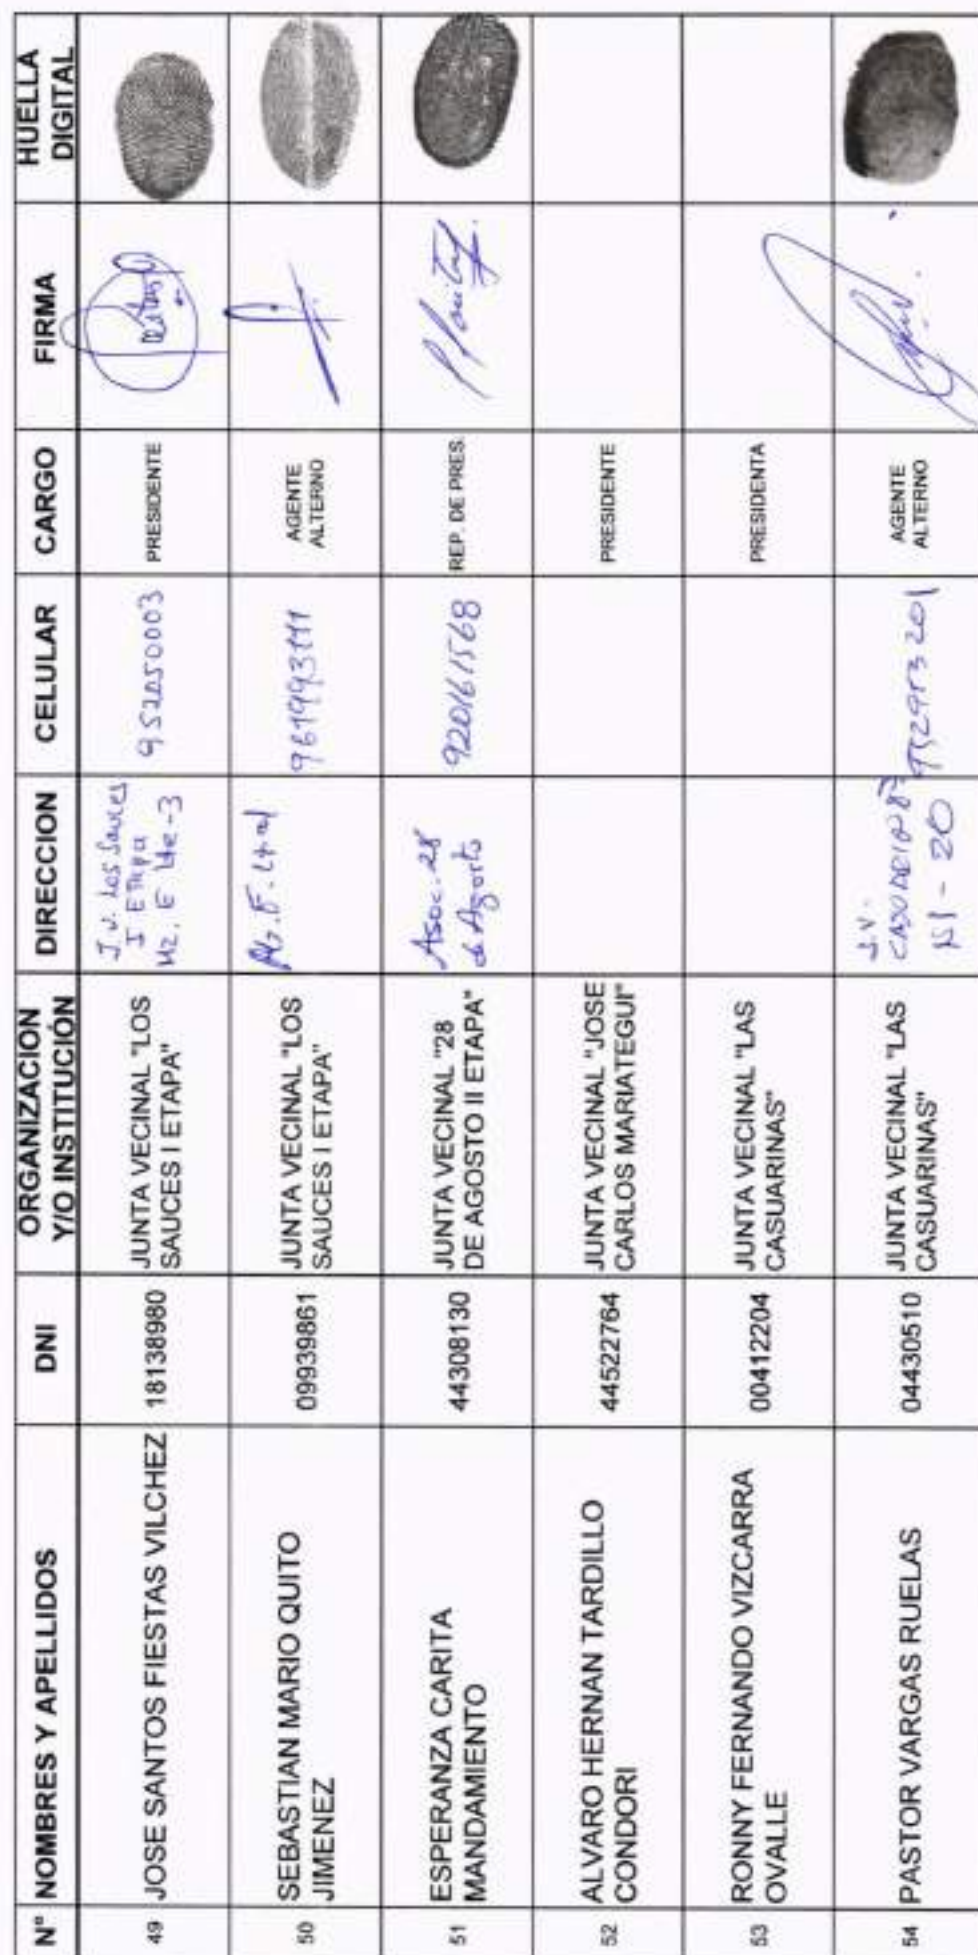 N° NOMBRES Y APELLIDOS DNI ORGANIZACION Y/O INSTITUCIÓN DIRECCION CELULAR CARGO FIRMA HUELLA DIGITAL
49 JOSE SANTOS FIESTAS VILCHEZ 18138980 JUNTA VECINAL "LOS
SAUCES I ETAPA"
J.V. Los Sauces
I ETapa
Mz. E Lte-3
952050003 PRESIDENTE
50 SEBASTIAN MARIO QUITO
JIMENEZ
09939861 JUNTA VECINAL "LOS
SAUCES I ETAPA"
AGENTE
ALTERNO
51 ESPERANZA CARITA
MANDAMIENTO
44308130 JUNTA VECINAL "28
DE AGOSTO II ETAPA"
Asoc. 28
de Agosto
920161568 REP. DE PRES.
52 ALVARO HERNAN TARDILLO
CONDORI
44522764 JUNTA VECINAL "JOSE
CARLOS MARIATEGUI"
PRESIDENTE
53 RONNY FERNANDO VIZCARRA
OVALLE
00412204 JUNTA VECINAL "LAS
CASUARINAS"
PRESIDENTA
54 PASTOR VARGAS RUELAS 04430510 JUNTA VECINAL "LAS
CASUARINAS"
J.V.
AGENTE
ALTERNO